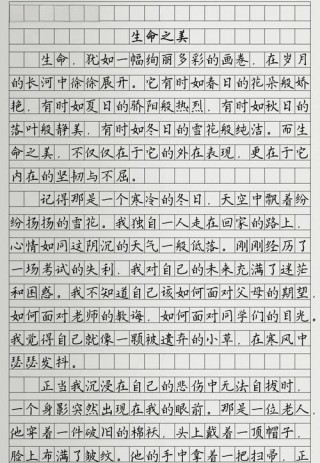 生命之美
生命，犹如一幅绚丽多彩的画卷，在岁月
的长河中徐徐展开。它有时如春日的花朵般娇
艳，有时如夏日的骄阳般热烈，有时如秋日的
落叶般静美，有时如冬日的雪花般纯洁。而生
命之美，不仅仅在于它的外在表现，更在于它
内在的坚韧与不屈。
记得那是一个寒冷的冬日，天空中飘着纷
纷扬扬的雪花。我独自一人走在回家的路上，
心情如同这阴沉的天气一般低落。刚刚经历了
一场考试的失利，我对自己的未来充满了迷茫
和困惑。我不知道自己该如何面对父母的期望，
如何面对老师的教诲，如何面对同学们的目光。
我觉得自己就像一颗被遗弃的小草，在寒风中
瑟瑟发抖。
正当我沉浸在自己的悲伤中无法自拔时，
一个身影突然出现在我的眼前。那是一位老人，
他穿着一件破旧的棉袄，头上戴着一顶帽子，
脸上布满了皱纹。他的手中拿着一把扫帚，正